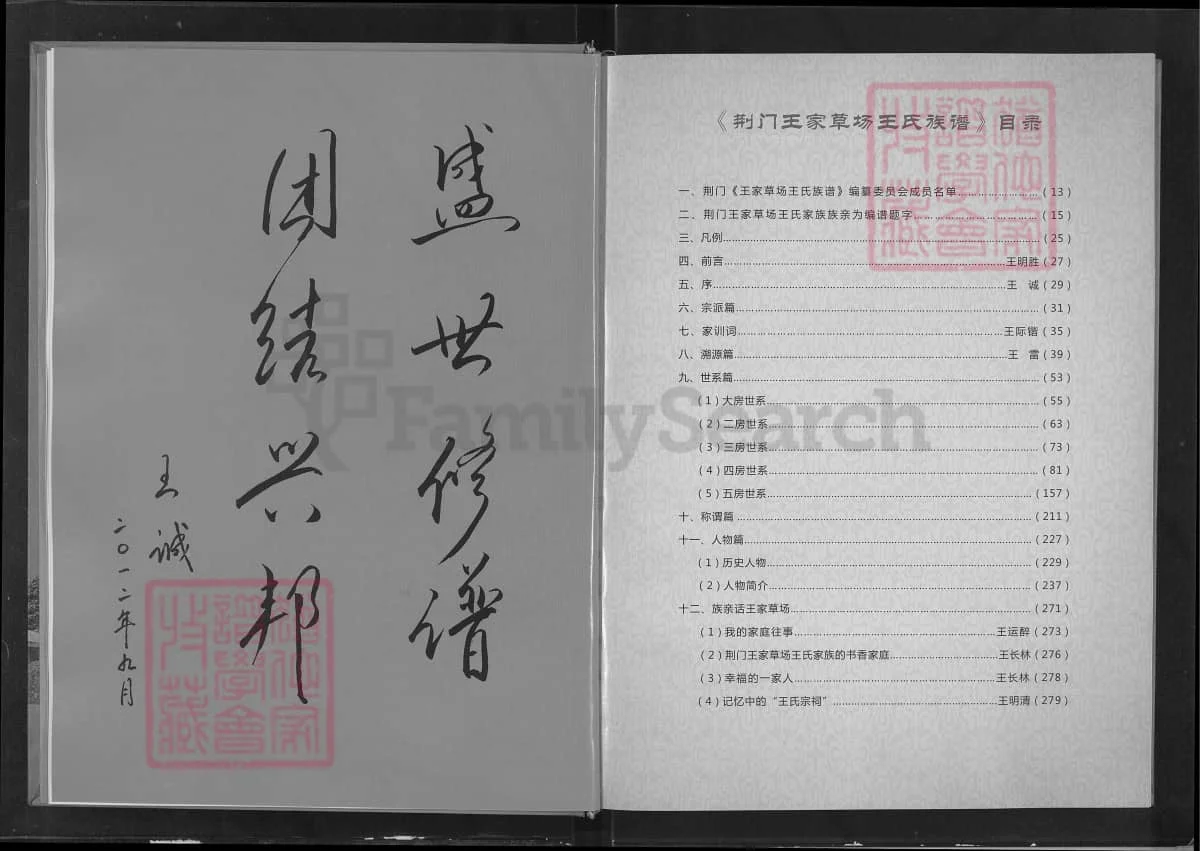 盛世修谱
团结兴邦
王诚
二〇一二年九月
《荆门王家草场王氏族谱》目录
一、荆门《王家草场王氏族谱》编纂委员会成员名单……………………(13)
二、荆门王家草场王氏家族族亲为编谱题字……………………………(15)
三、凡例……………………………………(25)
四、前言……………………………………王明胜(27)
五、序……………………………………王 诚(29)
六、宗派篇……………………………………(31)
七、家训词……………………………………王际锴(35)
八、溯源篇……………………………………王 雷(39)
九、世系篇……………………………………(53)
(1)大房世系……………………………………(55)
(2)二房世系……………………………………(63)
(3)三房世系……………………………………(73)
(4)四房世系……………………………………(81)
(5)五房世系……………………………………(157)
十、称谓篇……………………………………(211)
十一、人物篇……………………………………(227)
(1)历史人物……………………………………(229)
(2)人物简介……………………………………(237)
十二、族亲话王家草场……………………………………(271)
(1)我的家庭往事……………………………………王运醉(273)
(2)荆门王家草场王氏家族的书香家庭……………………王长林(276)
(3)幸福的一家人……………………………………王长林(278)
(4)记忆中的“王氏宗祠”……………………………………王明清(279)
FamilySearch